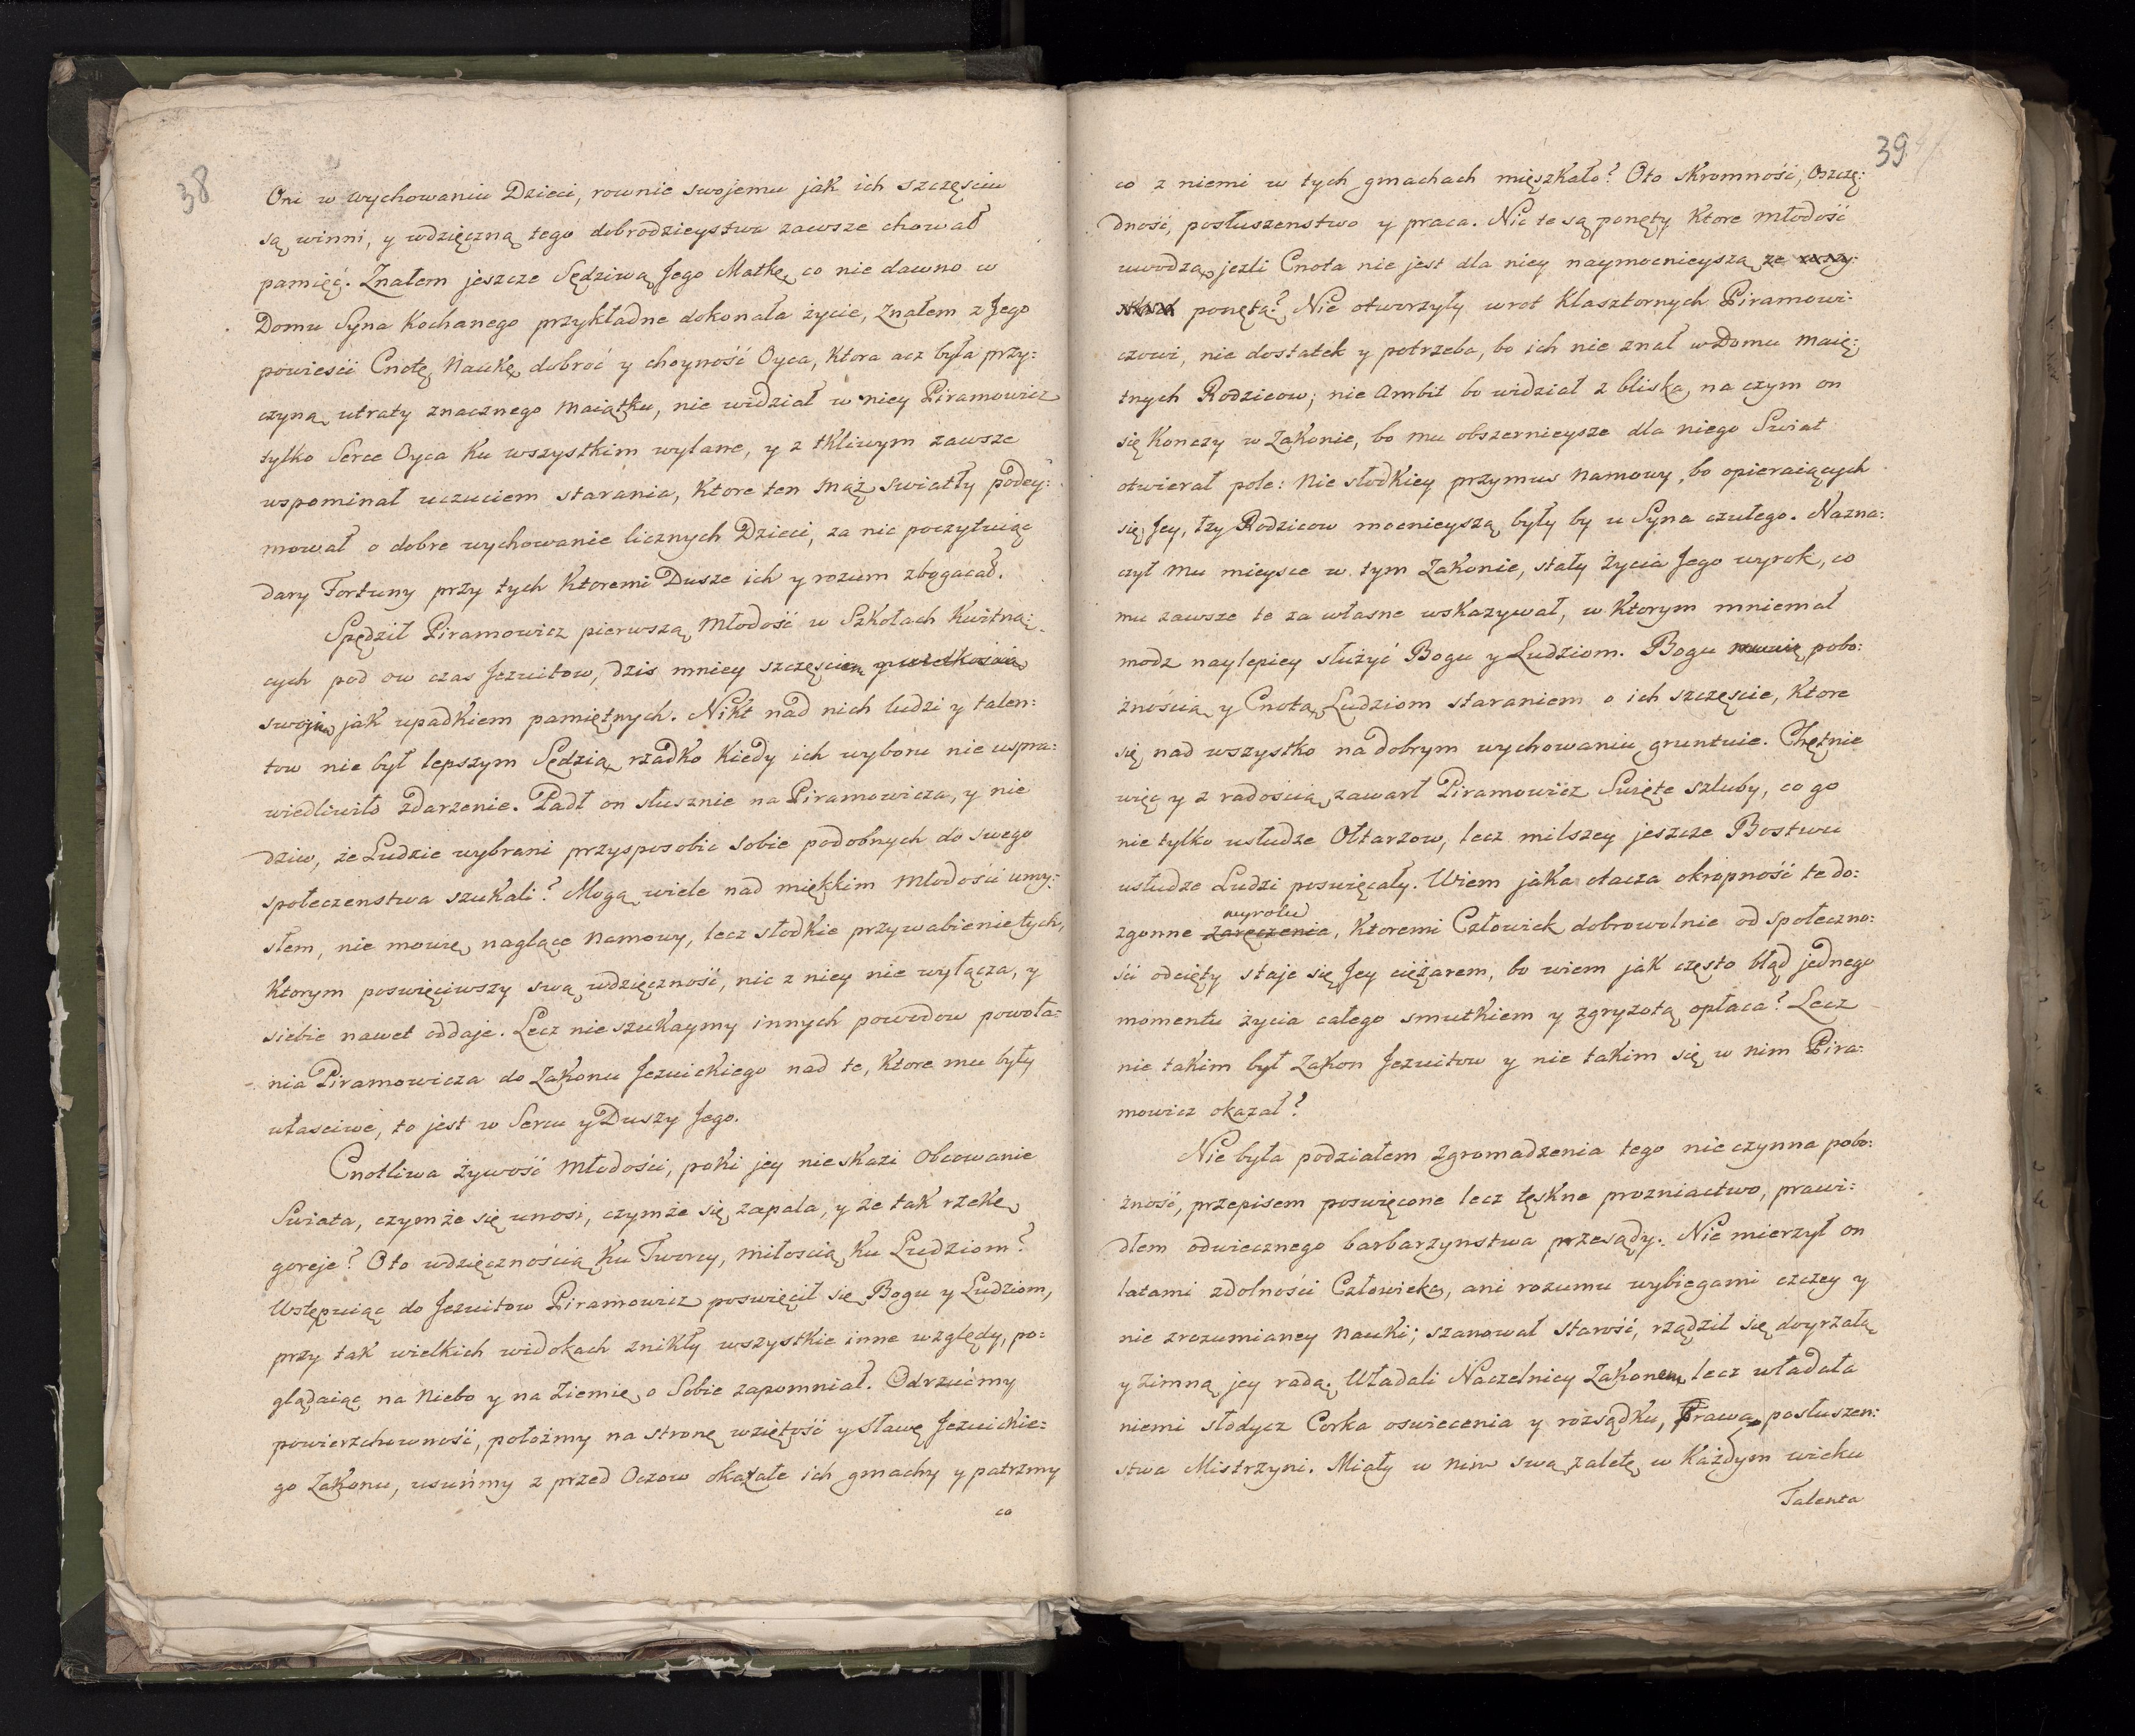 38
Oni w wychowaniu Dzieci, rownie swojemu jak ich szczęsciu
są winni, y wdzięczną tego dobrodzieystwa zawsze chował
pamięć. Znałem jeszcze Sędziwą Jego Matkę co nie dawno w
Domu Syna Kochanego przykładne dokonała życie, Znałem z Jego
powieści Cnotę, Naukę, dobroć y choyność Oyca, Ktora acz była przy:
czyną utraty znacznego Maiątku, nie widział w niey Piramowicz
tylko Serce Oyca Ku wszystkim wylane, y z tkliwym zawsze
wspominał uczuciem starania, Ktore ten Mąż swiatły podey:
mował o dobre wychowanie licznych Dzieci, za nic poczytuiąc
dary Fortuny przy tych Ktoremi Dusze ich y rozum zbogacał.
Spędził Piramowicz pierwszą Młodość w Szkołach Kwitną:
cych pod ow czas Jezuitow, dzis mniey szczęsciem y wielkoscią
swoją jak upadkiem pamiętnych. Nikt nad nich ludzi y talen:
tow nie był lepszym Sędzią, rzadko Kiedy ich wyboru nie uspra:
wiedliwiło zdarzenie. Padł on słusznie na Piramowicza, y nie
dziw, że Ludzie wybrani przysposobić sobie podobnych do swego
społeczenstwa szukali? Mogą wiele nad miękkim Młodości umy:
słem, nie mowię naglące Namowy, lecz słodkie przywabienie tych,
Ktorym poswięciwszy swą wdzięczność, nic z niey nie wyłącza, y
siebie nawet oddaje. Lecz nie szukaymy innych powodow powoła:
nia Piramowicza do Zakonu Jezuickiego nad te, Ktore mu były
własciwe, to jest w Sercu y Duszy Jego.
Cnotliwa żywość Młodości, poki jey nie skazi Obcowanie
Swiata, czymże się unosi, czymże się zapala, y że tak rzekę
goreje? Oto wdzięcznością Ku Tworcy, Miłoscią Ku Ludziom?
Wstępuiąc do Jezuitow Piramowicz poswięcił się Bogu y Ludziom,
przy tak wielkich widokach znikły wszystkie inne względy, po:
glądaiąc na Niebo y na Ziemię, o Sobie zapomniał. Odrzućmy
powierzchowność, połóżmy na stronę wziętość y Sławę Jezuickie:
go Zakonu, usuńmy z przed Oczow okazałe ich gmachy y patrzmy
co
39
co z niemi w tych gmachach mięszkało? Oto skromność, Oszczę:
dność, posłuszenstwo y praca. Nie te są ponęty Ktore Młodość
uwodzą, jezli Cnota nie jest dla niey naymocnieyszą ze
ponętą? Nie otworzyły wrot Klasztornych Piramowi:
czowi, nie dostatek y potrzeba, bo ich nie znał w Domu Maię:
tnych Rodzicow; nie Ambit bo widział z bliska, na czym on
się Konczy w Zakonie, bo mu obszernieysze dla niego Swiat
otwierał pole: Nie słodkiey przymus Namowy, bo opieraiących
się Jey, łzy Rodzicow mocnieyszą były by u Syna czułego. Nazna:
czył Mu mieysce w tym Zakonie, stały życia Jego wyrok, co
mu zawsze te za własne wskazywał, w Ktorym mniemał
modz naylepiey służyć Bogu y Ludziom. Bogu pobo:
żnością y Cnotą, Ludziom staraniem o ich szczęscie, Ktore
się nad wszystko na dobrym wychowaniu gruntuie. Chętnie
więc y z radoscią zawarł Piramowicz Swięte szluby, co go
nie tylko usłudze Ołtarzow, lecz milszey jeszcze Bostwu
usłudze Ludzi poswięcały. Wiem jaka otacza okropność te do:
wyroki
zgonne zaręczenia, Ktoremi Człowiek dobrowolnie od społeczno:
ści odcięty staje się Jey ciężarem, bo wiem jak często błąd jednego
momentu życia całego smutkiem y zgryzotą opłaca? Lecz
nie takim był Zakon Jezuitow y nie takim się w nim Pira:
mowicz okazał?
Nie była podziałem Zgromadzenia tego nie czynna pobo:
żność, przepisem poswięcone lecz tęskne prozniactwo, prawi:
dłem odwiecznego barbarzynstwa przesądy. Nie mierzył on
latami zdolności Człowieka, ani rozumu wybiegami czczey y
nie zrozumianey Nauki; szanował starość, rządził się doyrzałą
y zimną jey radą. Władali Naczelnicy Zakonem, lecz władała
niemi słodycz Corka oswiecenia y rozsądku, Prawa posłuszen:
stwa Mistrzyni. Miały w nim swą zaletę w Każdym wieku
Talenta